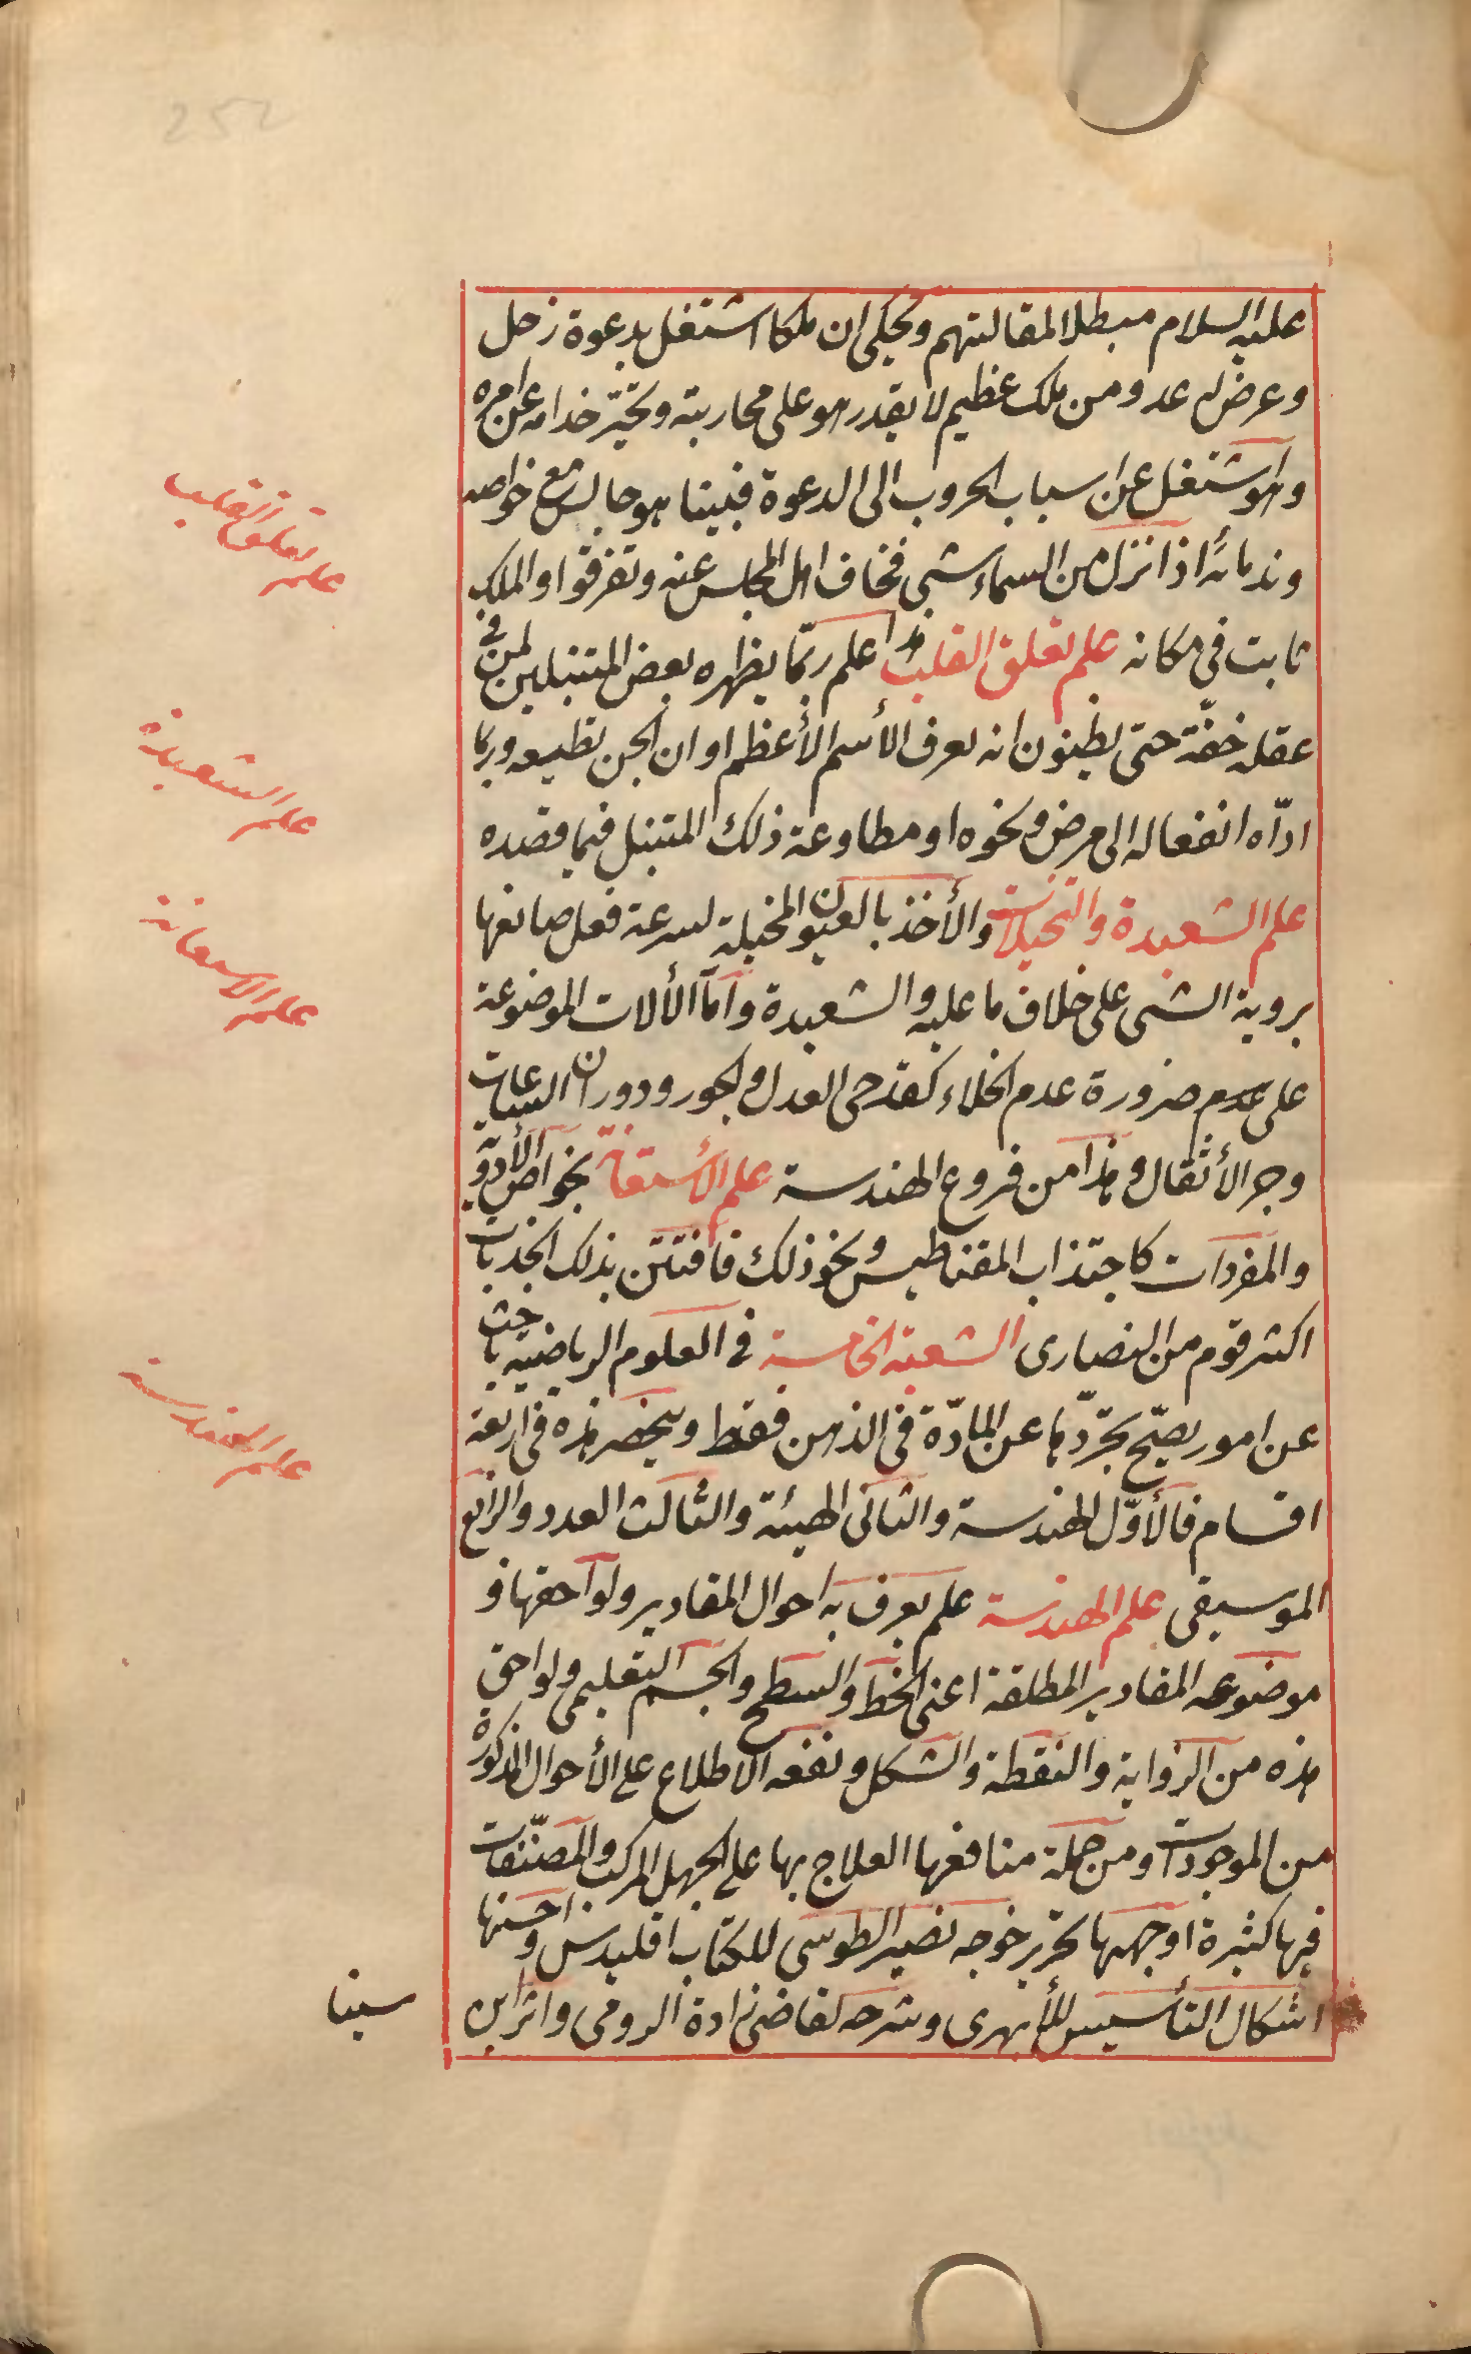 252
عليه السلام مبطلا لمقالتهم ويحكى ان ملكا اشتغل بدعوة زحل
وعرض له عدو من ملك عظيم لا يقدر هو على محاربته وتحيّر خدامه عن امره
واهو شتغل عن اسباب الحروب الى الدعوة فبينا هو جالس مع خواصه
وندمائه اذا نزل من السماء شئ فخاف اهل المجلس عنه وتفرقوا والملك
ثابت فى مكانه علم تعلق القلب هذا علم ربّما يظهره بعض المتنبلين لمن فى
عقله خفّة حتى يظنون انه يعرف الأسم الأعظم او ان الجن تطيعه وربما
ادّاه انفعاله الى مرض ونحوه او مطاوعة ذلك المتنبل فيما قصده
علم الشعبدة والتخيلات والأخذ بالعيون المخيلة لسرعة فعل صانعها
برؤية الشئ على خلاف ما عليه والشعبدة وأمّا الألات الموضوعة
على عدم ضرورة عدم الخلاء كقدحى العدل والجور ودوران الساعات
وجر الأثقال وهذا من فروع الهندسة علم الأستعانة بخواص الأدوية
والمفردات كاجتذاب المقناطيس ونحو ذلك فافتتن بذلك الجذبات
اكثر قوم من النصارى الشعبة الخامسة فى العلوم الرياضية باحث
عن امور يصحّ تجرّدها عن المادّة فى الذهن فقط وينحصر هذه فى اربعة
اقسام فالأوّل الهندسة والثانى الهيئة والثالث العدد والرابع
الموسيقى علم الهندسة علم يعرف به احوال المقادير ولواحقها و
موضوعه المقادير المطلقة اعنى الخط والسطح والجسم التعليمى ولواحق
هذه من الزواية والنقطة والشكل ونفعه الاطلاع على الأحوال المذكورة
من الموجودات ومن جملة منافعها العلاج بها على الجهل المركب والمصنّفات
فيها كثيرة اوجهها تحرير خوجه نصير الطوسى للكتاب اقليدس واحسنها
اشكال التأسيس للأبهرى وشرحه لقاضى زادة الرومى واثر ابن
سينا
علم تعلق القلب
علم الشعبدة
علم الاستعانة
علم الهندسة